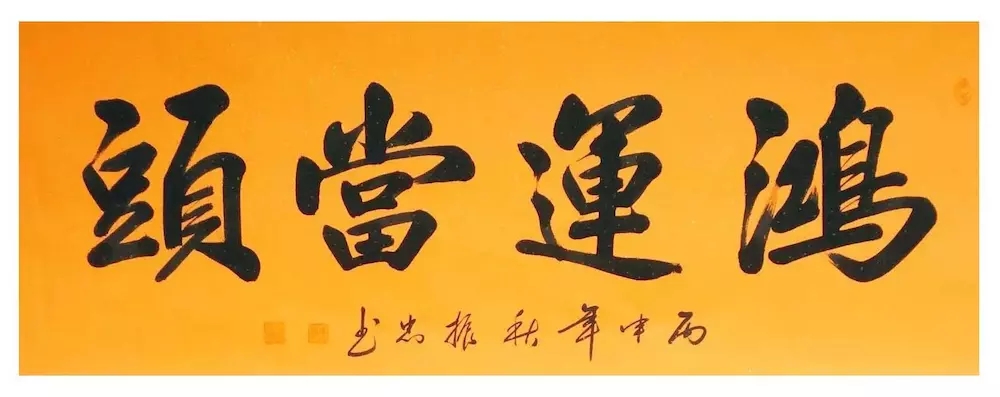 鴻運當頭
丙申年秋振忠书